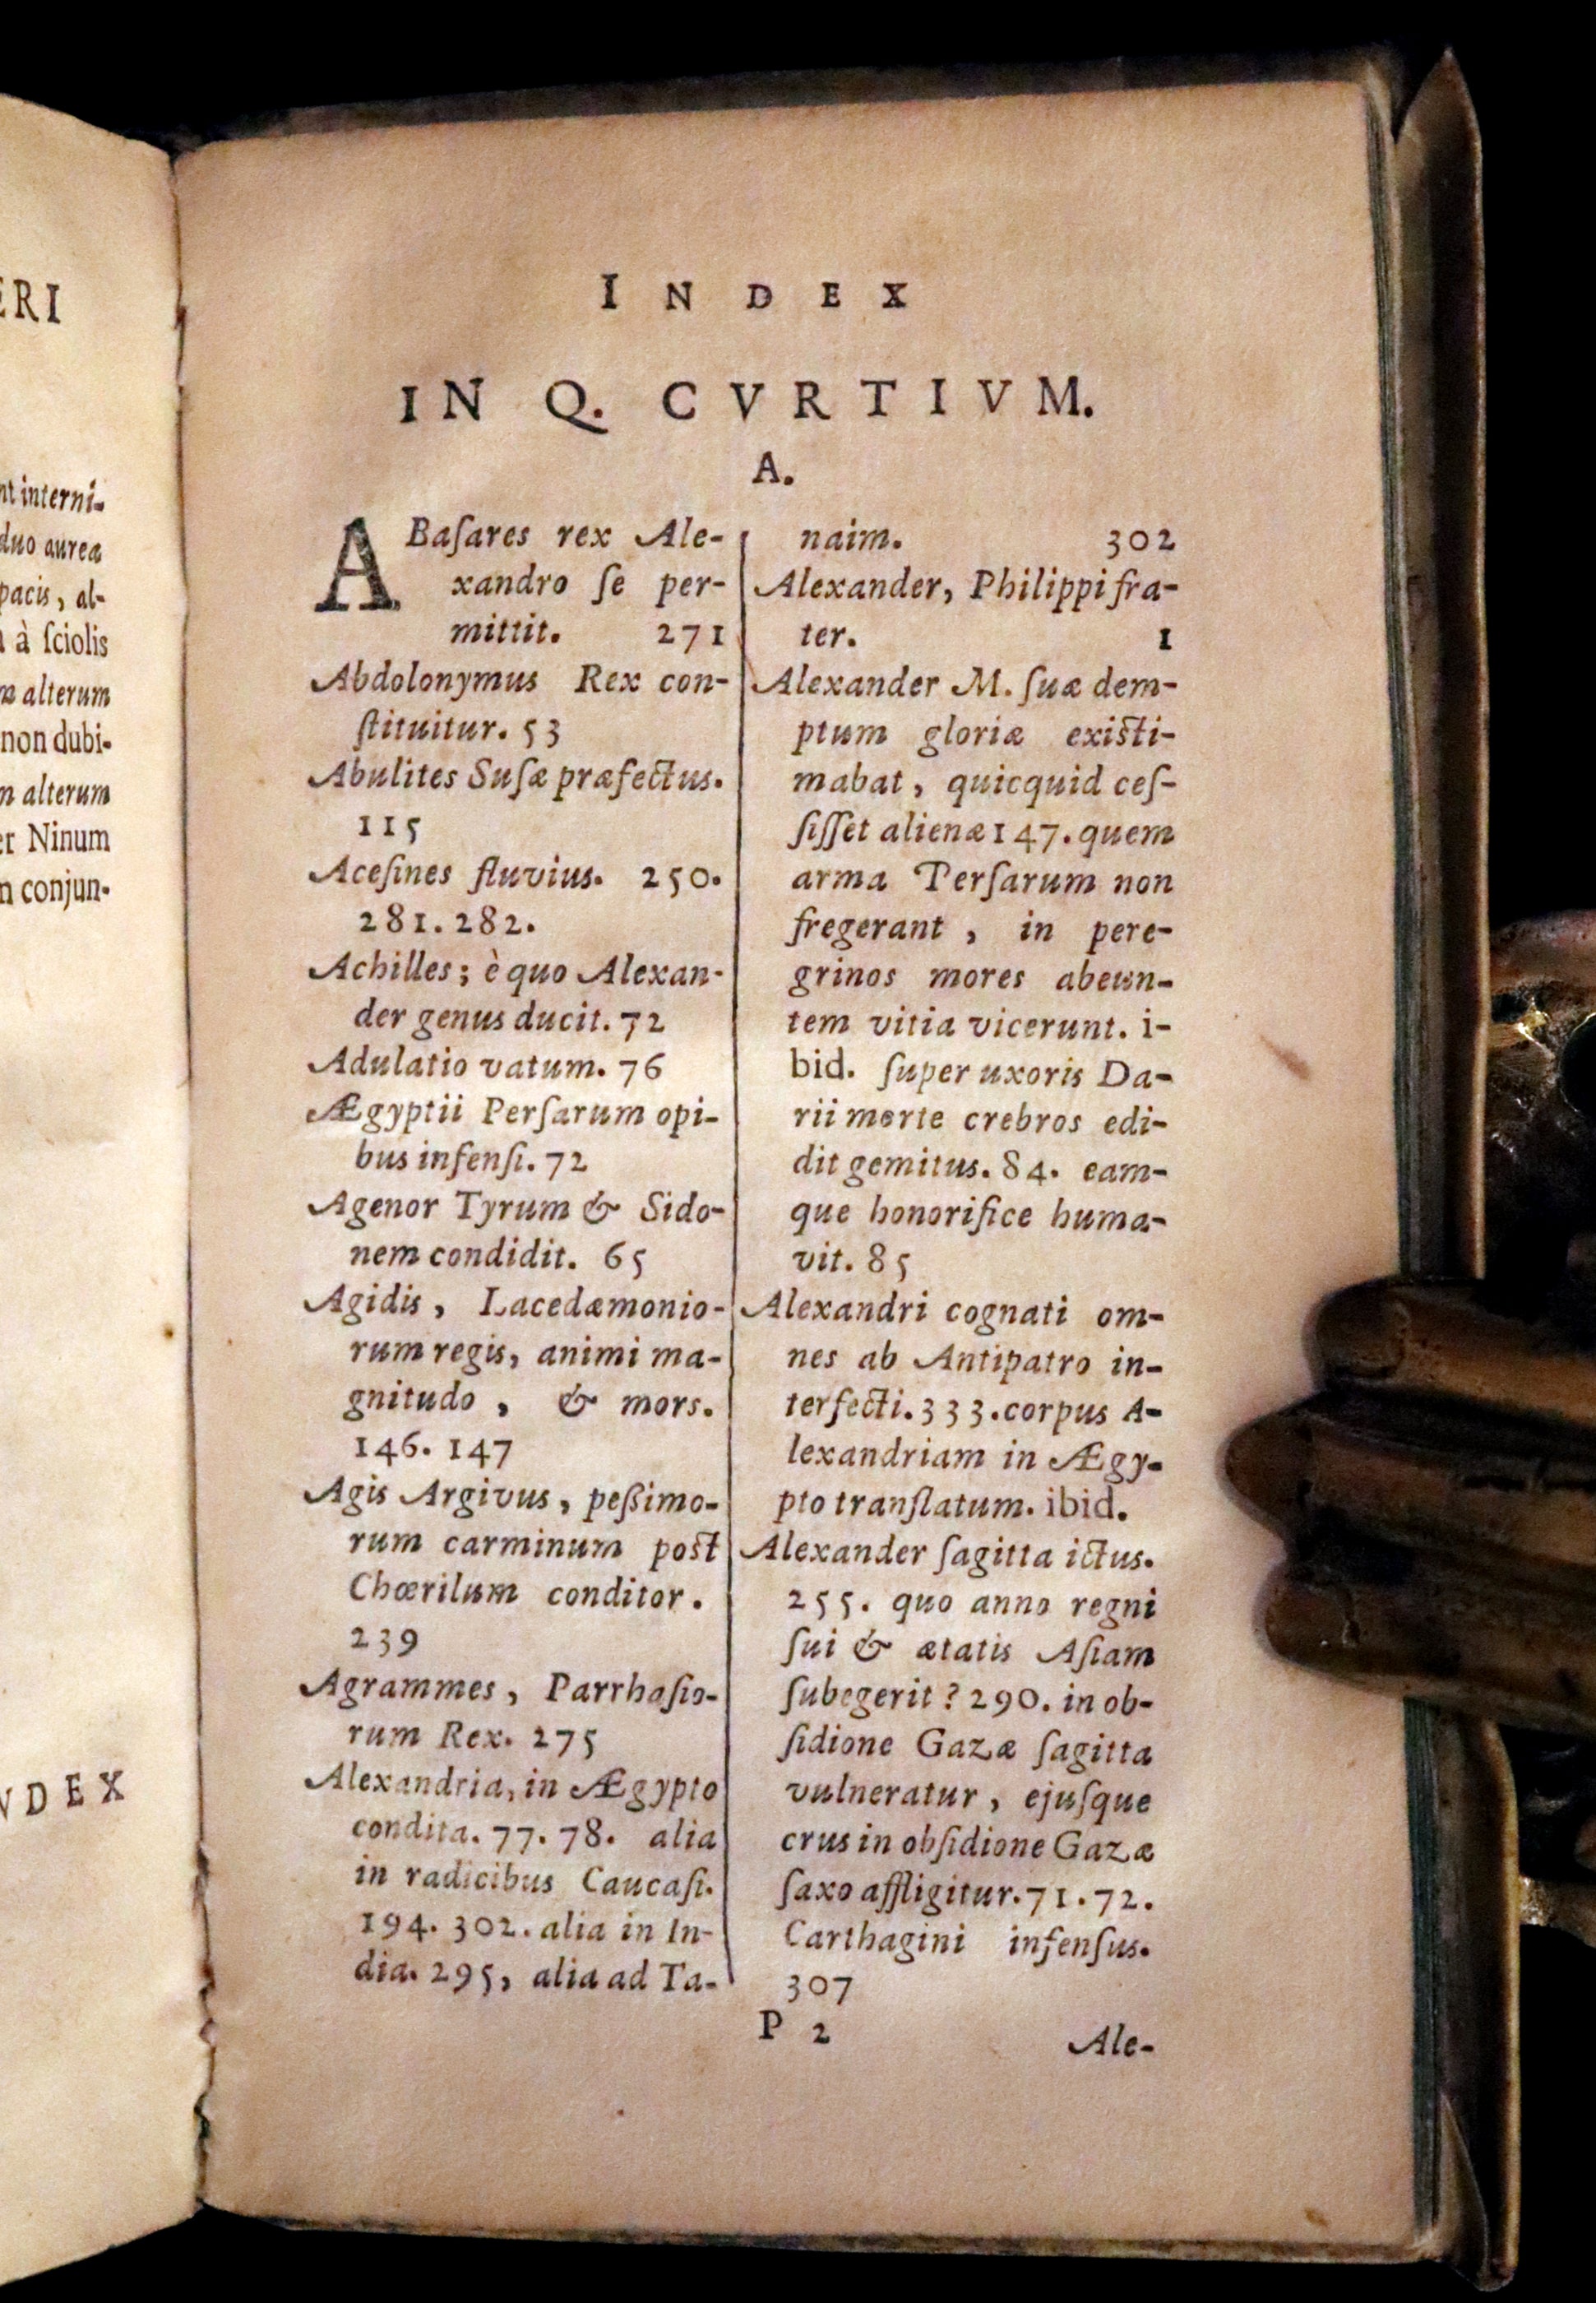 ERI
nt interni-
duo aurea
pacis, al-
à ſciolis
alterum
non dubi-
alterum
Ninum
conjun-
NDEX
INDEX
IN Q. CVRTIVM.
A.
ABaſares rex Ale-
xandro ſe per-
mittit. 271
Abdolonymus Rex con-
ſtituitur. 53
Abulites Suſæ præfectus.
115
Aceſines fluvius. 250.
281. 282.
Achilles; è quo Alexan-
der genus ducit. 72
Adulatio vatum. 76
Ægyptii Perſarum opi-
bus infenſi. 72
Agenor Tyrum & Sido-
nem condidit. 65
Agidis, Lacedæmonio-
rum regis, animi ma-
gnitudo, & mors.
146. 147
Agis Argivus, peßimo-
rum carminum post
Chœrilum conditor.
239
Agrammes, Parrhaſio-
rum Rex. 275
Alexandria, in Ægypto
condita. 77. 78. alia
in radicibus Caucaſi.
194. 302. alia in In-
dia. 295, alia ad Ta-
naim. 302
Alexander, Philippi fra-
ter. 1
Alexander M. ſuæ dem-
ptum gloriæ existi-
mabat, quicquid ceſ-
ſiſſet alienæ 147. quem
arma Perſarum non
fregerant, in pere-
grinos mores abeun-
tem vitia vicerunt. i-
bid. ſuper uxoris Da-
rii morte crebros edi-
dit gemitus. 84. eam-
que honorifice huma-
vit. 85
Alexandri cognati om-
nes ab Antipatro in-
terfecti. 333. corpus A-
lexandriam in Ægy-
pto tranſlatum. ibid.
Alexander ſagitta ictus.
255. quo anno regni
ſui & ætatis Aſiam
ſubegerit? 290. in ob-
ſidione Gazæ ſagitta
vulneratur, ejuſque
crus in obſidione Gazæ
ſaxo affligitur. 71. 72.
Carthagini infenſus.
307
P 2
Ale-